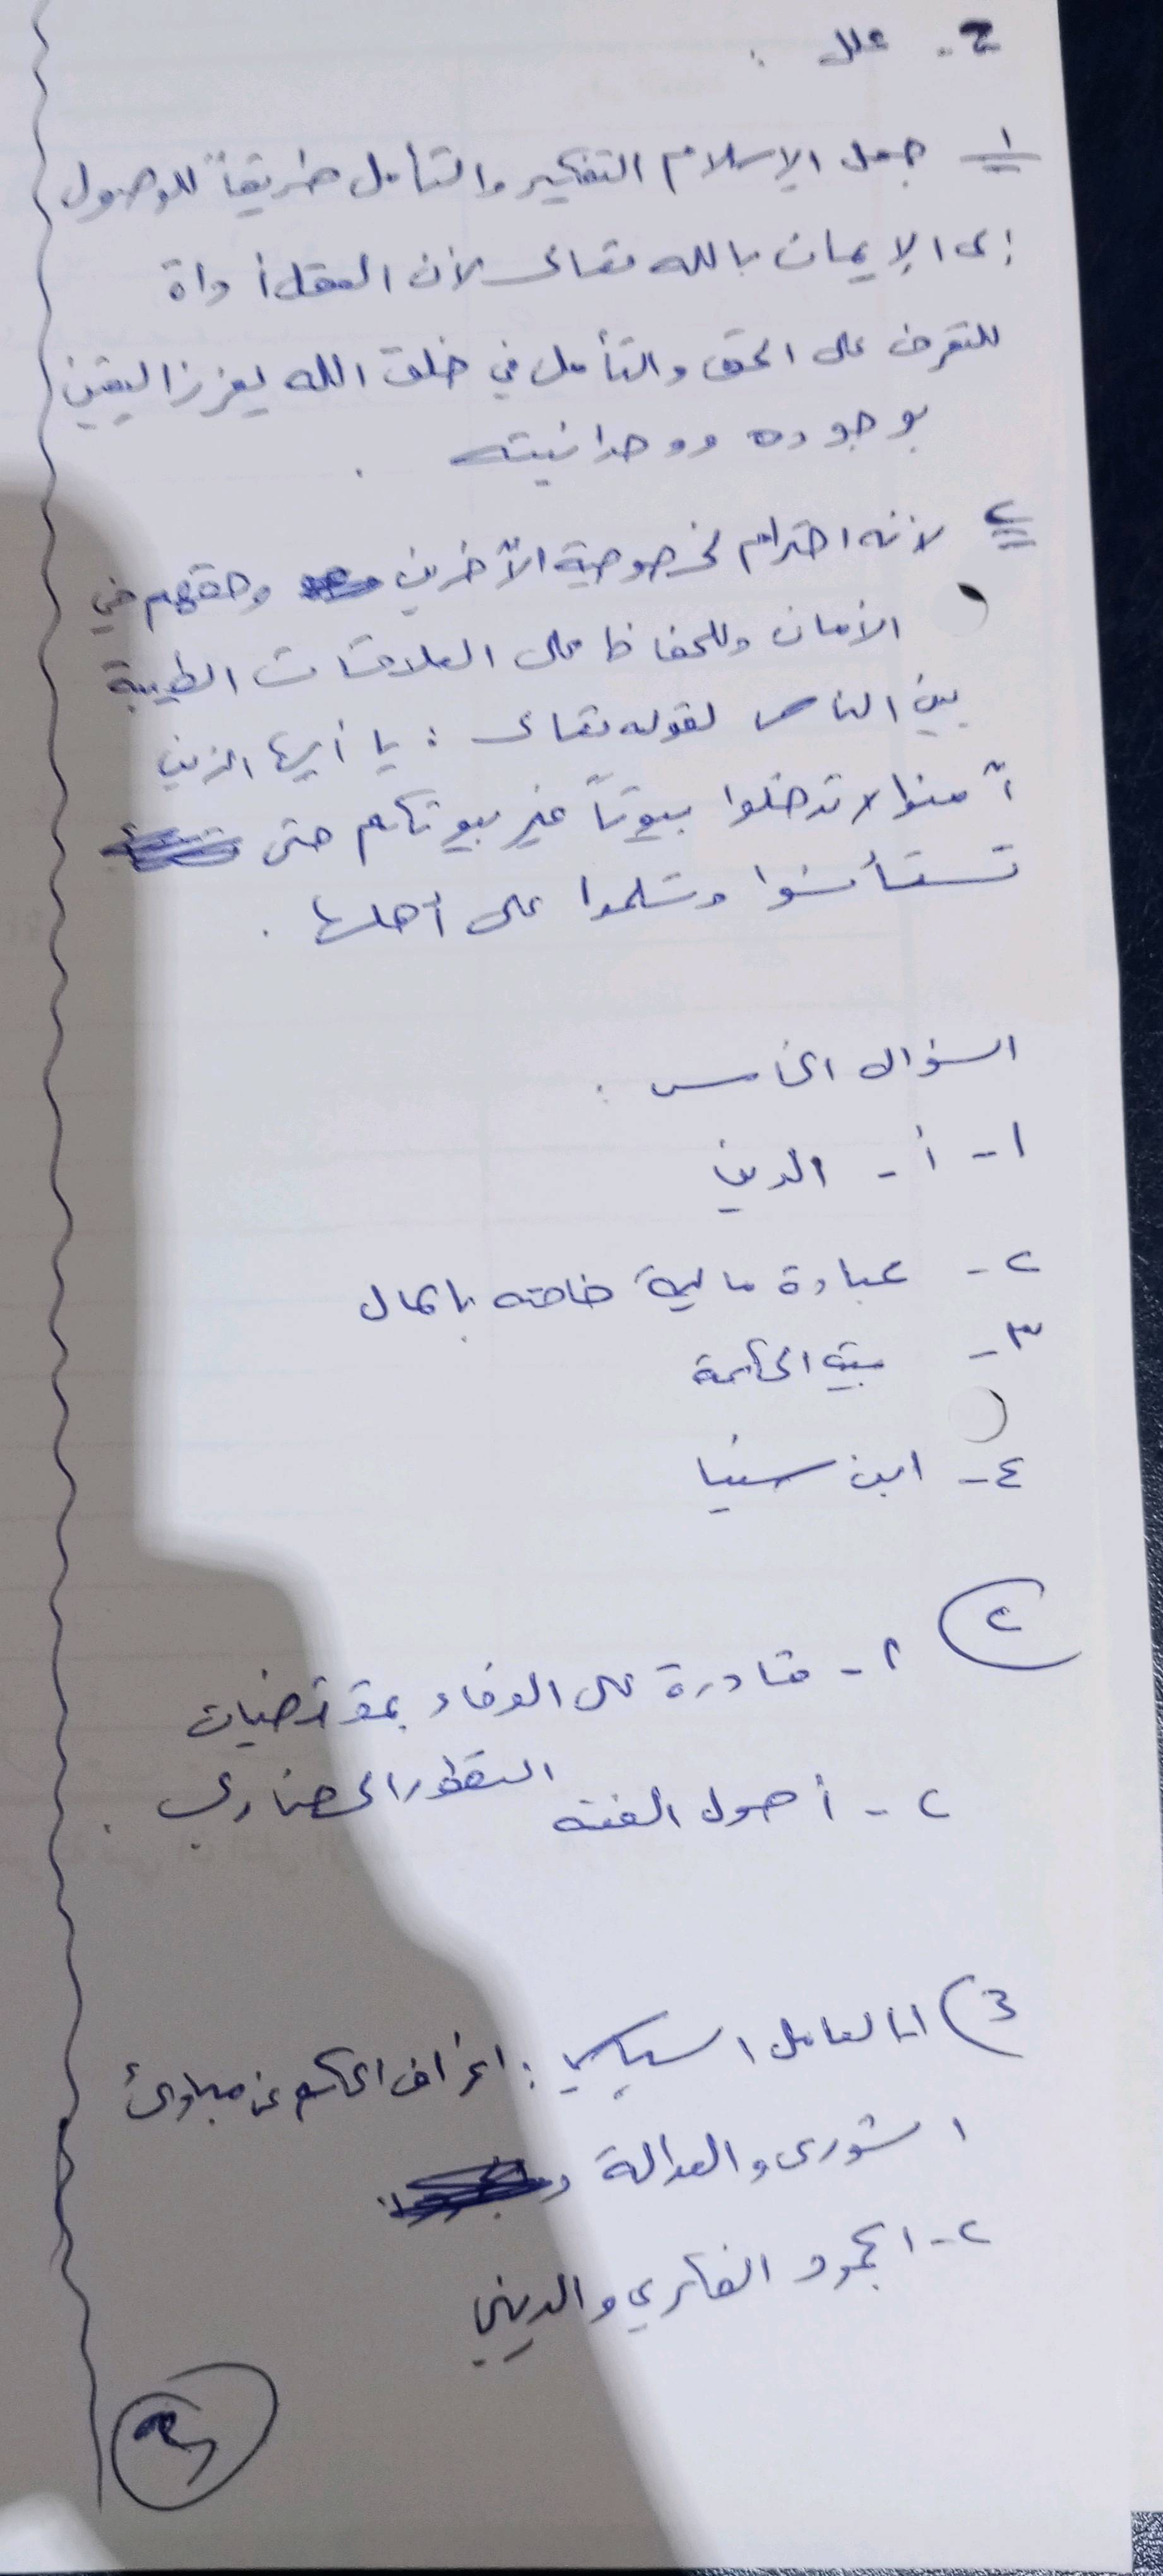 2- علل :
١ـ جعل الإسلام التفكير والتأمل طريقاً للوصول
إلى الإيمان بالله تعالى لأن العقل أداة
للتعرف على الحق والتأمل في خلق الله يعزز اليقين
بوجوده ووحدانيته .
٢ لأنه احترام لخصوصية الآخرين وحقهم في
الأمان وللحفاظ على العلاقات الطيبة
بين الناس لقوله تعالى : يا أيها الذين
آمنوا لا تدخلوا بيوتاً غير بيوتكم حتى
تستأنسوا وتسلموا على أهلها .
السؤال الخامس :
١- أ - الدين
٢- عبادة مالية خاصة بالمال
٣- بيت الحكمة
٤- ابن سينا
٢
١- قادرة على الوفاء بمقتضيات
التطور الحضاري .
٢- أصول الفقه
3) العامل السياسي : انحراف الحكم عن مبادئ
الشورى والعدالة و
٢- الجمود الفكري والديني